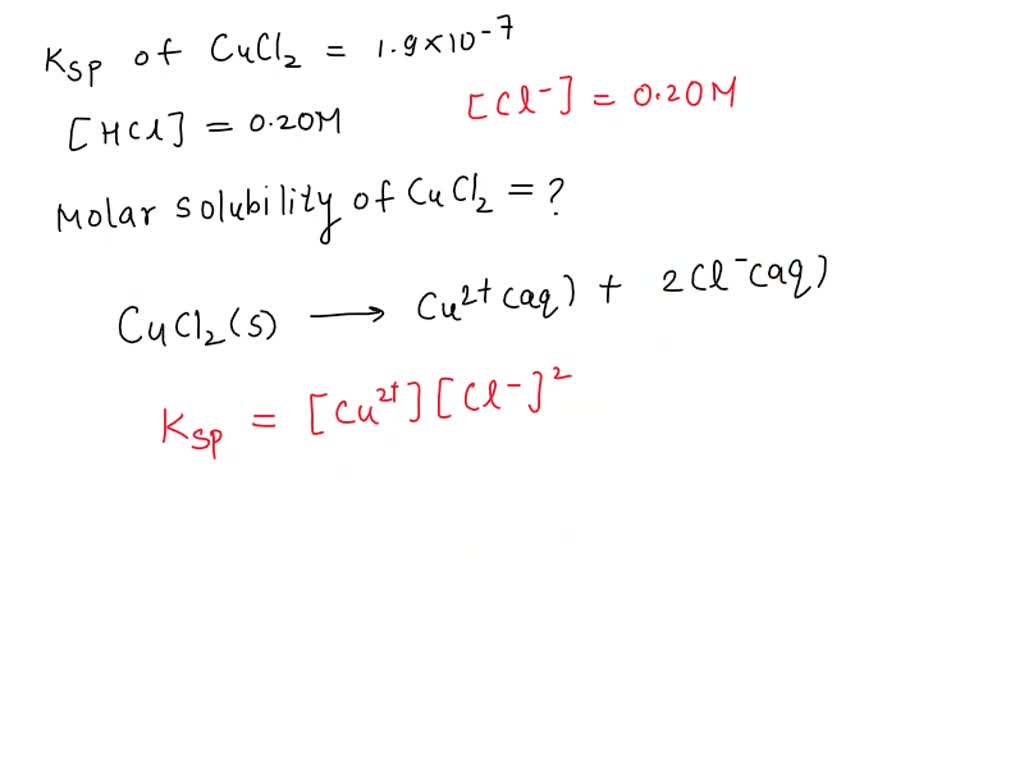 Ksp of CuCl2 = 1.9×10-7
[HCl] = 0.20M
[Cl-] = 0.20M
Molar solubility of CuCl2 = ?
CuCl2(s) → Cu2+ (aq) + 2Cl-(aq)
Ksp = [Cu2+][Cl-]2